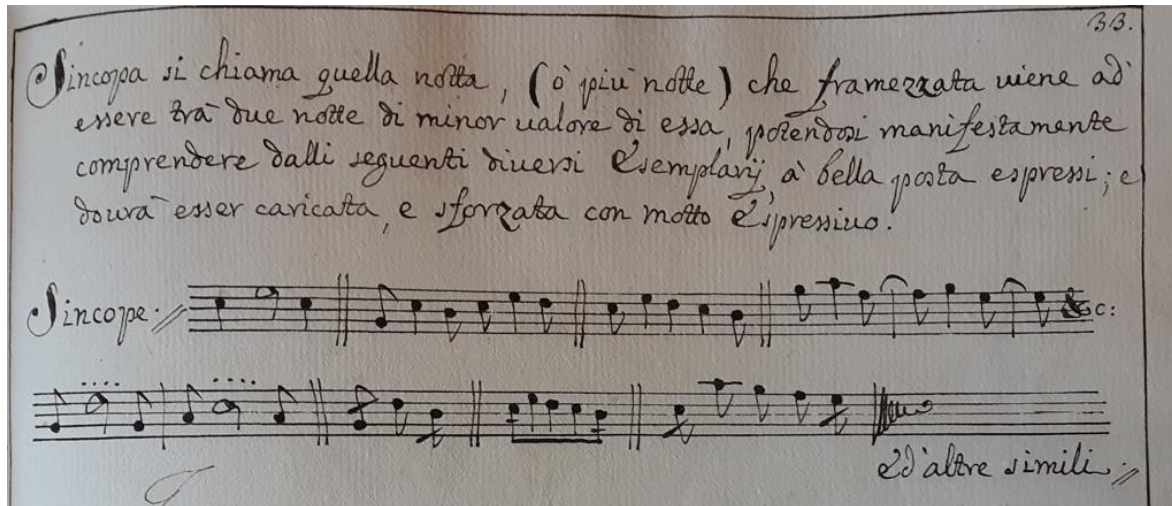 33.
Sincopa si chiama quella notta, (ò più notte) che framezzata uiene ad'
essere trà due notte di minor ualore di essa, potendosi manifestamente
comprendere dalli seguenti diuersi Esemplarij, à bella posta espressi; e
dourà esser caricata, e sforzata con motto Espressiuo.
Sincope. &c:
ed'altre simili.